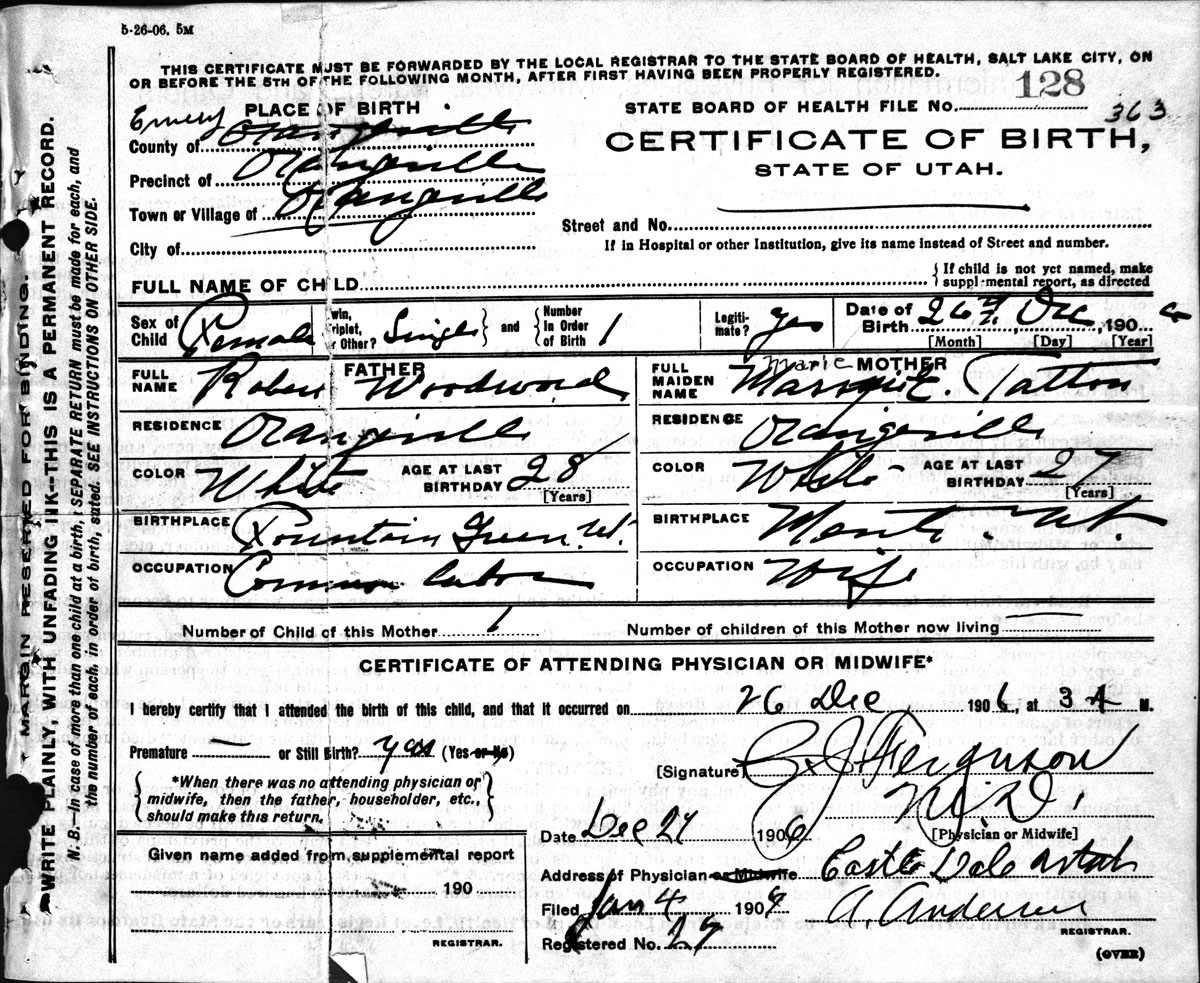 5-26-06. 5M
THIS CERTIFICATE MUST BE FORWARDED BY THE LOCAL REGISTRAR TO THE STATE BOARD OF HEALTH, SALT LAKE CITY, ON
OR BEFORE THE 5TH OF THE FOLLOWING MONTH, AFTER FIRST HAVING BEEN PROPERLY REGISTERED.
128
PLACE OF BIRTH
STATE BOARD OF HEALTH FILE No.
363
Emery
County of Orangeville
CERTIFICATE OF BIRTH,
Precinct of Orangeville
STATE OF UTAH.
Town or Village of Orangeville
Street and No.
City of
If in Hospital or other Institution, give its name instead of Street and number.
FULL NAME OF CHILD
If child is not yet named, make
suppl·mental report, as directed
Sex of Child Female
Twin, Triplet, or Other? Single and Number in Order of Birth 1
Legiti-mate? yes
Date of Birth 26th Dec, 190
[Month] [Day] [Year]
FATHER
FULL NAME Robert Woodward
RESIDENCE Orangeville
COLOR White AGE AT LAST BIRTHDAY 28
[Years]
BIRTHPLACE Fountain Green Ut.
OCCUPATION Common labor
MOTHER
Marie
FULL MAIDEN NAME E. Tatton
RESIDENCE Orangeville
COLOR White AGE AT LAST BIRTHDAY 27
[Years]
BIRTHPLACE Ut.
OCCUPATION Wife
Number of Child of this Mother 1
Number of children of this Mother now living
CERTIFICATE OF ATTENDING PHYSICIAN OR MIDWIFE*
I hereby certify that I attended the birth of this child, and that it occurred on 26 Dec 1906, at 3 A M.
Premature — or Still Birth? yes (Yes or No)
*When there was no attending physician or
midwife, then the father, householder, etc.,
should make this return.
[Signature] Ferguson
M.D.
[Physician or Midwife]
Date Dec 27 1906
Given name added from supplemental report
190
REGISTRAR.
Address of Physician or Midwife Castle Dale Utah
Filed Jan 4 1907
A. Anderson
Registered No. 27
REGISTRAR.
(OVER)
MARGIN RESERVED FOR BINDING.
WRITE PLAINLY, WITH UNFADING INK--THIS IS A PERMANENT RECORD.
N. B.—In case of more than one child at a birth, a SEPARATE RETURN must be made for each, and
the number of each, in order of birth, stated. SEE INSTRUCTIONS ON OTHER SIDE.